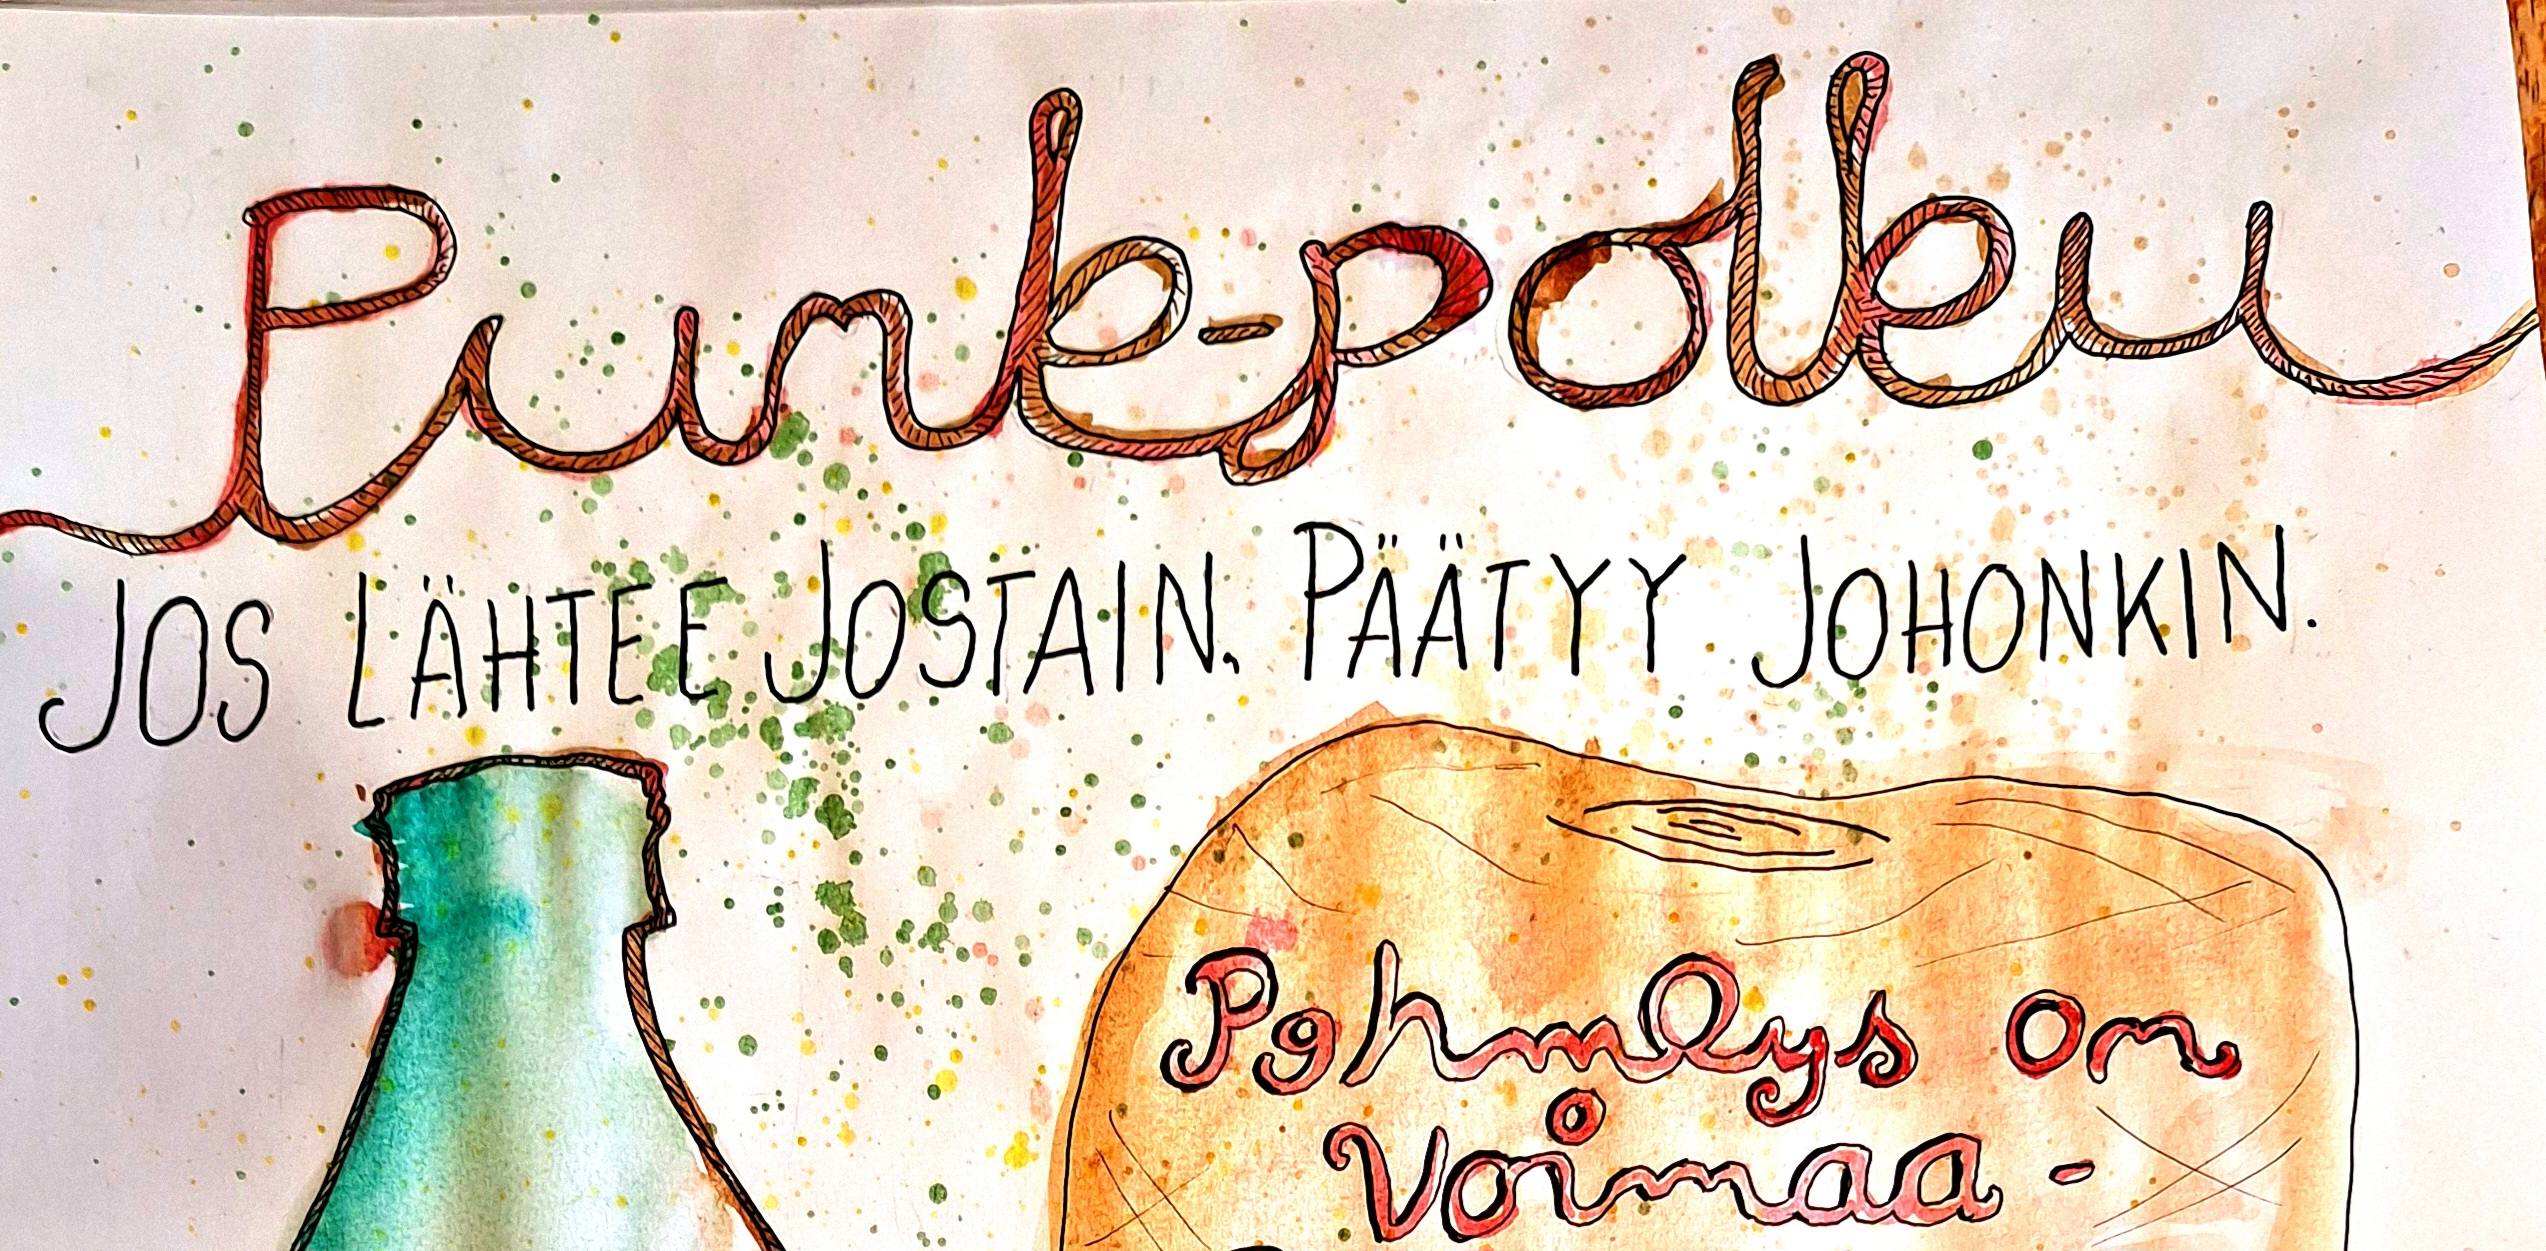 Punk-polku
JOS LÄHTEE JOSTAIN, PÄÄTYY JOHONKIN.
Pehmeys on
Voimaa -